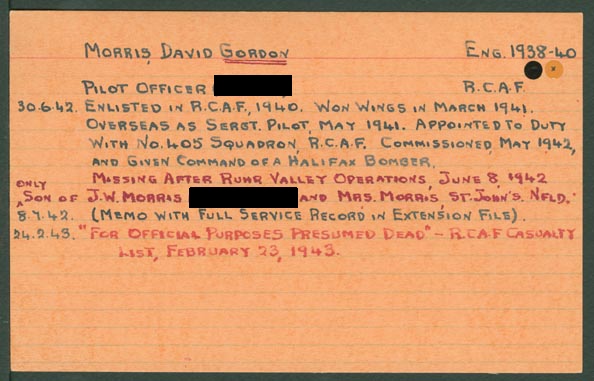 MORRIS, DAVID GORDON ENG. 1938-40
PILOT OFFICER R.C.A.F.
30.6.42. ENLISTED IN R.C.A.F., 1940. WON WINGS IN MARCH 1941.
OVERSEAS AS SERGT. PILOT, MAY 1941. APPOINTED TO DUTY
WITH NO. 405 SQUADRON, R.C.A.F. COMMISSIONED, MAY 1942,
AND GIVEN COMMAND OF A HALIFAX BOMBER.
MISSING AFTER RUHR VALLEY OPERATIONS, JUNE 8, 1942
ONLY
SON OF J.W. MORRIS AND MRS. MORRIS, ST. JOHN'S. NFLD.
8.7.42. (MEMO WITH FULL SERVICE RECORD IN EXTENSION FILE).
24.2.43. "FOR OFFICIAL PURPOSES PRESUMED DEAD" - R.C.A.F CASUALTY
LIST, FEBRUARY 23, 1943.